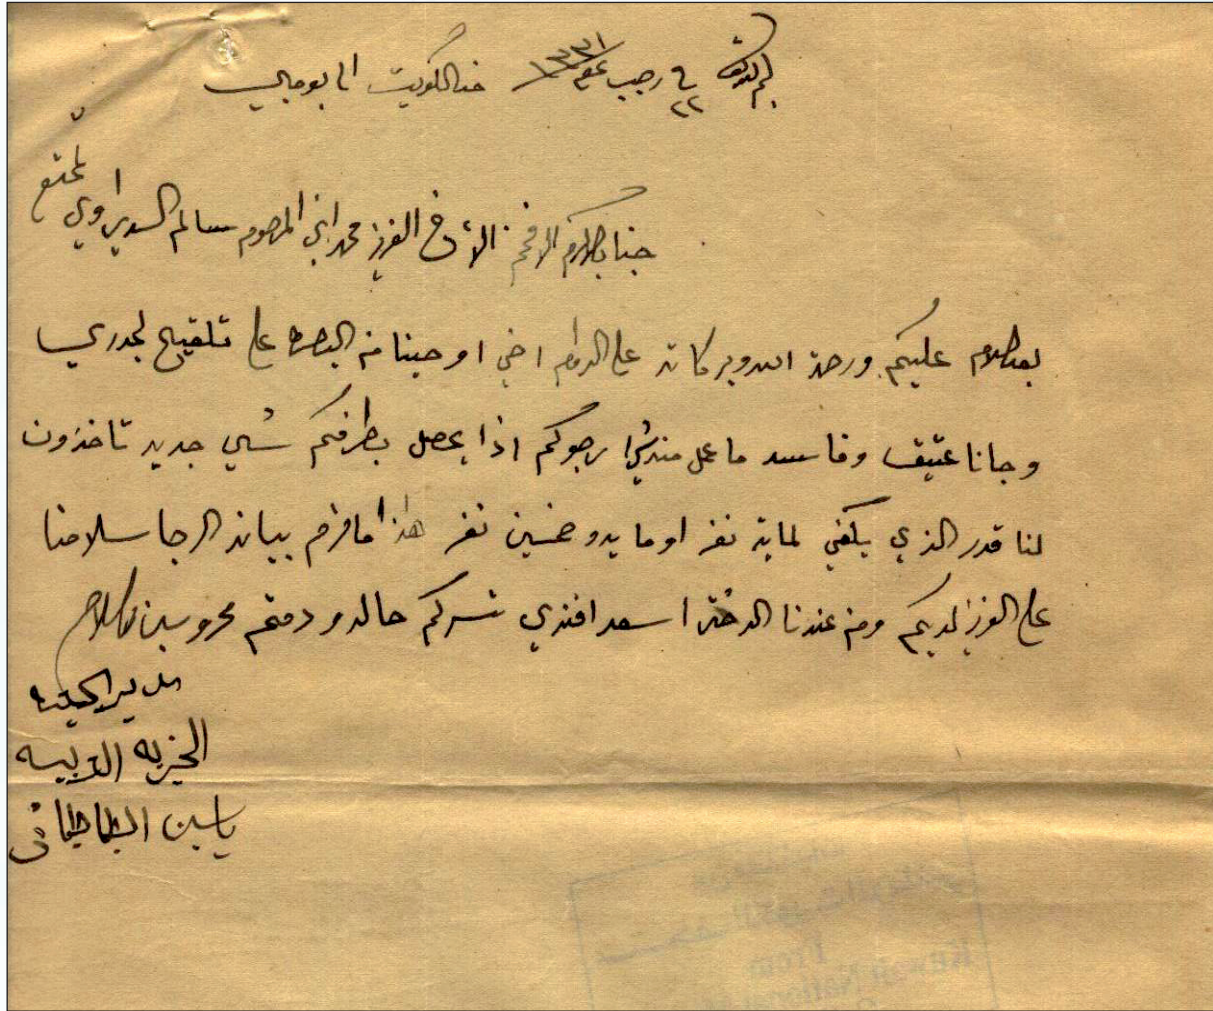 في ٢٢ رجب ١٣٣١ من الكويت الى بومبي
جناب المكرم الافخم الأخ العزيز محمد ابن المرحوم سالم السديراوي المحترم
بعد السلام عليكم ورحمة الله وبركاته على الدوام اخي اوصينا من البصره على تلقيح الجدري
وجانا عتيق وفاسد ما عمل منه شي ارجوكم اذا يحصل بطرفكم شي جديد تاخذون
لنا قدر الذي يكفي لماية نفر او ماية وخمسين نفر هذا ما لزم بيانه الرجا سلامنا
على العزيز لديكم ومن عندنا الدختر اسعد افندي يسركم حاله ودمتم محروسين والسلام
مدير الجمعية
الخيريه العربيه
ياسين الطباطبائي
From
Kuwait National